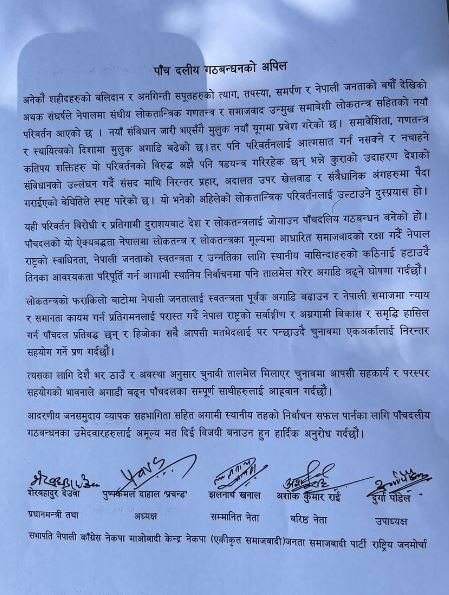 पाँच दलीय गठबन्धनको अपिल
अनेकौ शहीदहरुको बलिदान र अनगिन्ती सपूतहरुको त्याग, तपस्या, समर्पण र नेपाली जनताको वर्षौं देखिको
अथक संघर्षले नेपालमा संघीय लोकतान्त्रिक गणतन्त्र र समाजवाद उन्मुख समावेशी लोकतन्त्र सहितको नयाँ
परिवर्तन आएको छ । नयाँ संविधान जारी भएसँगै मुलुक नयाँ यूगमा प्रवेश गरेको छ। समावेशिता, गणतन्त्र
र स्थायित्वको दिशामा मुलुक अगाडि बढेको छ। तर पनि परिवर्तनलाई आत्मसात गर्न नसक्ने र नचाहने
कतिपय शक्तिहरु यो परिवर्तनको विरुद्ध अझै पनि षडयन्त्र गरिरहेक छन् भन्ने कुराको उदाहरण देशको
संविधानको उल्लंघन गर्दै संसद माथि निरन्तर प्रहार, अदालत उपर खेलवाड र संवैधानिक अंगहरुमा पैदा
गराईएको बेथितिले स्पष्ट पारेको छ। यो भनेको अहिलेको लोकतान्त्रिक परिवर्तनलाई उल्टाउने दुस्प्रयास हो।
यही परिवर्तन विरोधी र प्रतिगामी दुराशयबाट देश र लोकतन्त्रलाई जोगाउन पाँचदलिय गठबन्धन बनेको हो।
पाँचदलको यो ऐक्यबद्धता नेपालमा लोकतन्त्र र लोकतन्त्रका मूल्यमा आधारित समाजबादको रक्षा गर्दै नेपाल
राष्ट्रको स्वाधिनता, नेपाली जनताको स्वतन्त्रता र उन्नतिका लागि स्थानीय वासिन्दाहरुको कठिनाई हटाउदै
तिनका आवश्यकता परिपूर्ति गर्न आगामी स्थानिय निर्वाचनमा पनि तालमेल गरेर अगाडि बढ्ने घोषणा गर्दछौं।
लोकतन्त्रको फराकिलो बाटोमा नेपाली जनतालाई स्वतन्त्रता पूर्वक अगाडि बढाउन र नेपाली समाजमा न्याय
र समानता कायम गर्न प्रतिगमनलाई परास्त गर्दै नेपाल राष्ट्रको सर्वाङ्गीण र अग्रगामी विकास र समृद्धि हासिल
गर्न पाँचदल प्रतिबद्ध छन् र हिजोका सबै आपसी मतभेदलाई पर पन्छाउदै चुनावमा एकअर्कालाई निरन्तर
सहयोग गर्ने प्रण गर्दछौं।
त्यसका लागि देशै भर ठाउँ र अवस्था अनुसार चुनावी तालमेल मिलाएर चुनावमा आपसी सहकार्य र परस्पर
सहयोगको भावनाले अगाडी बढ्न पाँचदलका सम्पूर्ण साथीहरुलाई आह्रवान गर्दछौं।
आदरणीय जनसमुदाय व्यापक सहभागिता सहित अगामी स्थानीय तहको निर्वाचन सफल पार्नका लागि पाँचदलीय
गठबन्धनका उमेदवारहरुलाई अमूल्य मत दिई विजयी बनाउन हुन हार्दिक अनुरोध गर्दछौं।
शेरबहादुर देउवा पुष्पकमल दाहाल 'प्रचन्ड' झलनाथ खनाल अशोक कुमार राई दुर्गा पौडेल
प्रधानमन्त्री तथा अध्यक्ष सम्मानित नेता बरिष्ठ नेता उपाध्यक्ष
सभापति नेपाली काँग्रेस नेकपा माओबादी केन्द्र नेकपा (एकीकृत समाजबादी)जनता समाजबादी पार्टी राष्ट्रिय जनमोर्चा